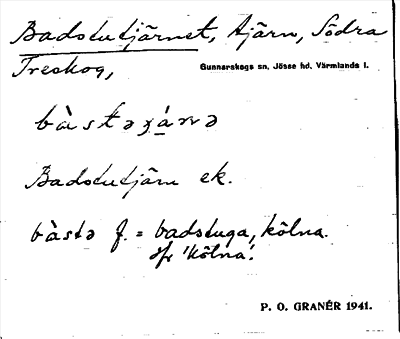 Badstutjärnet, tjärn, Södra
Treskog, Gunnarskogs sn, Jösse hd, Värmlands l.
bàstəʒá̱nə
Badstutjärn ek.
bàstə f. = badstuga, kölna.
jfr 'kölna'.
P. O. GRANÉR 1941.